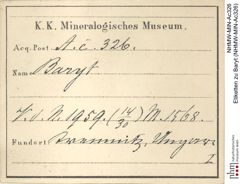 K. K. Mineralogisches Museum.
Acq. Post. A. c. 326.
Name Baryt
V. v. N. 1959. (14/30) M. 1568.
Fundort Kremnitz, Ungarn
I
NHMW-MIN-Ac326
Etiketten zu Baryt (NHMW-MIN-Ac326)
nhm